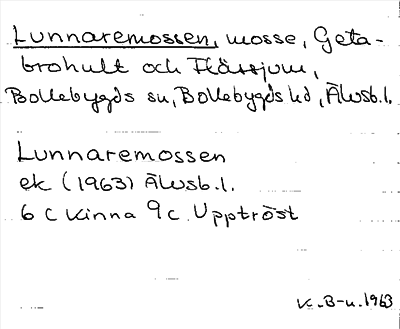 Lunnaremossen, mosse, Geta-
brohult och Flässjum,
Bollebygds sn, Bollebygds hd, Älvsb.l.
Lunnaremossen
ek (1963) Älvsb.l.
6 C Kinna 9 c. Upptröst
K.B-n. 1963